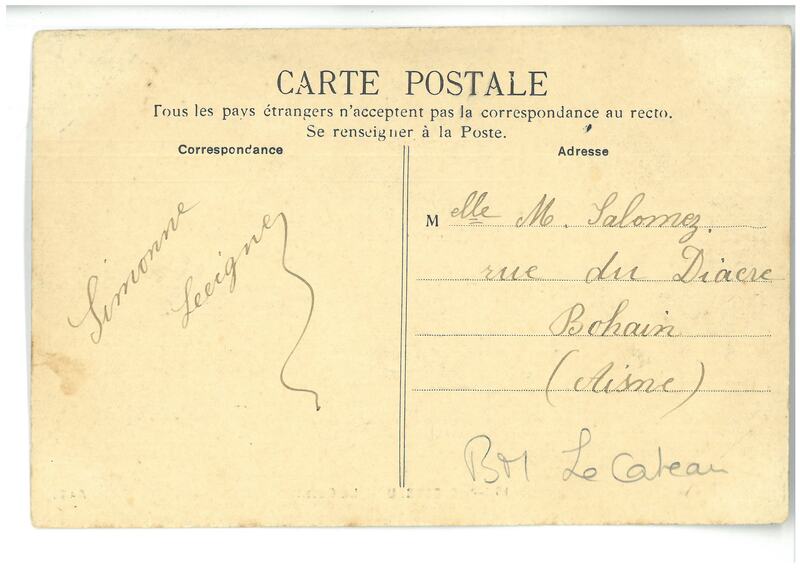 CARTE POSTALE
Tous les pays étrangers n'acceptent pas la correspondance au recto.
Se renseigner à la Poste.
Correspondance
Adresse
Simonne
Lecigne
M elle M. Salomez.
rue du Diacre
Bohain
(Aisne)
BM Le Cateau